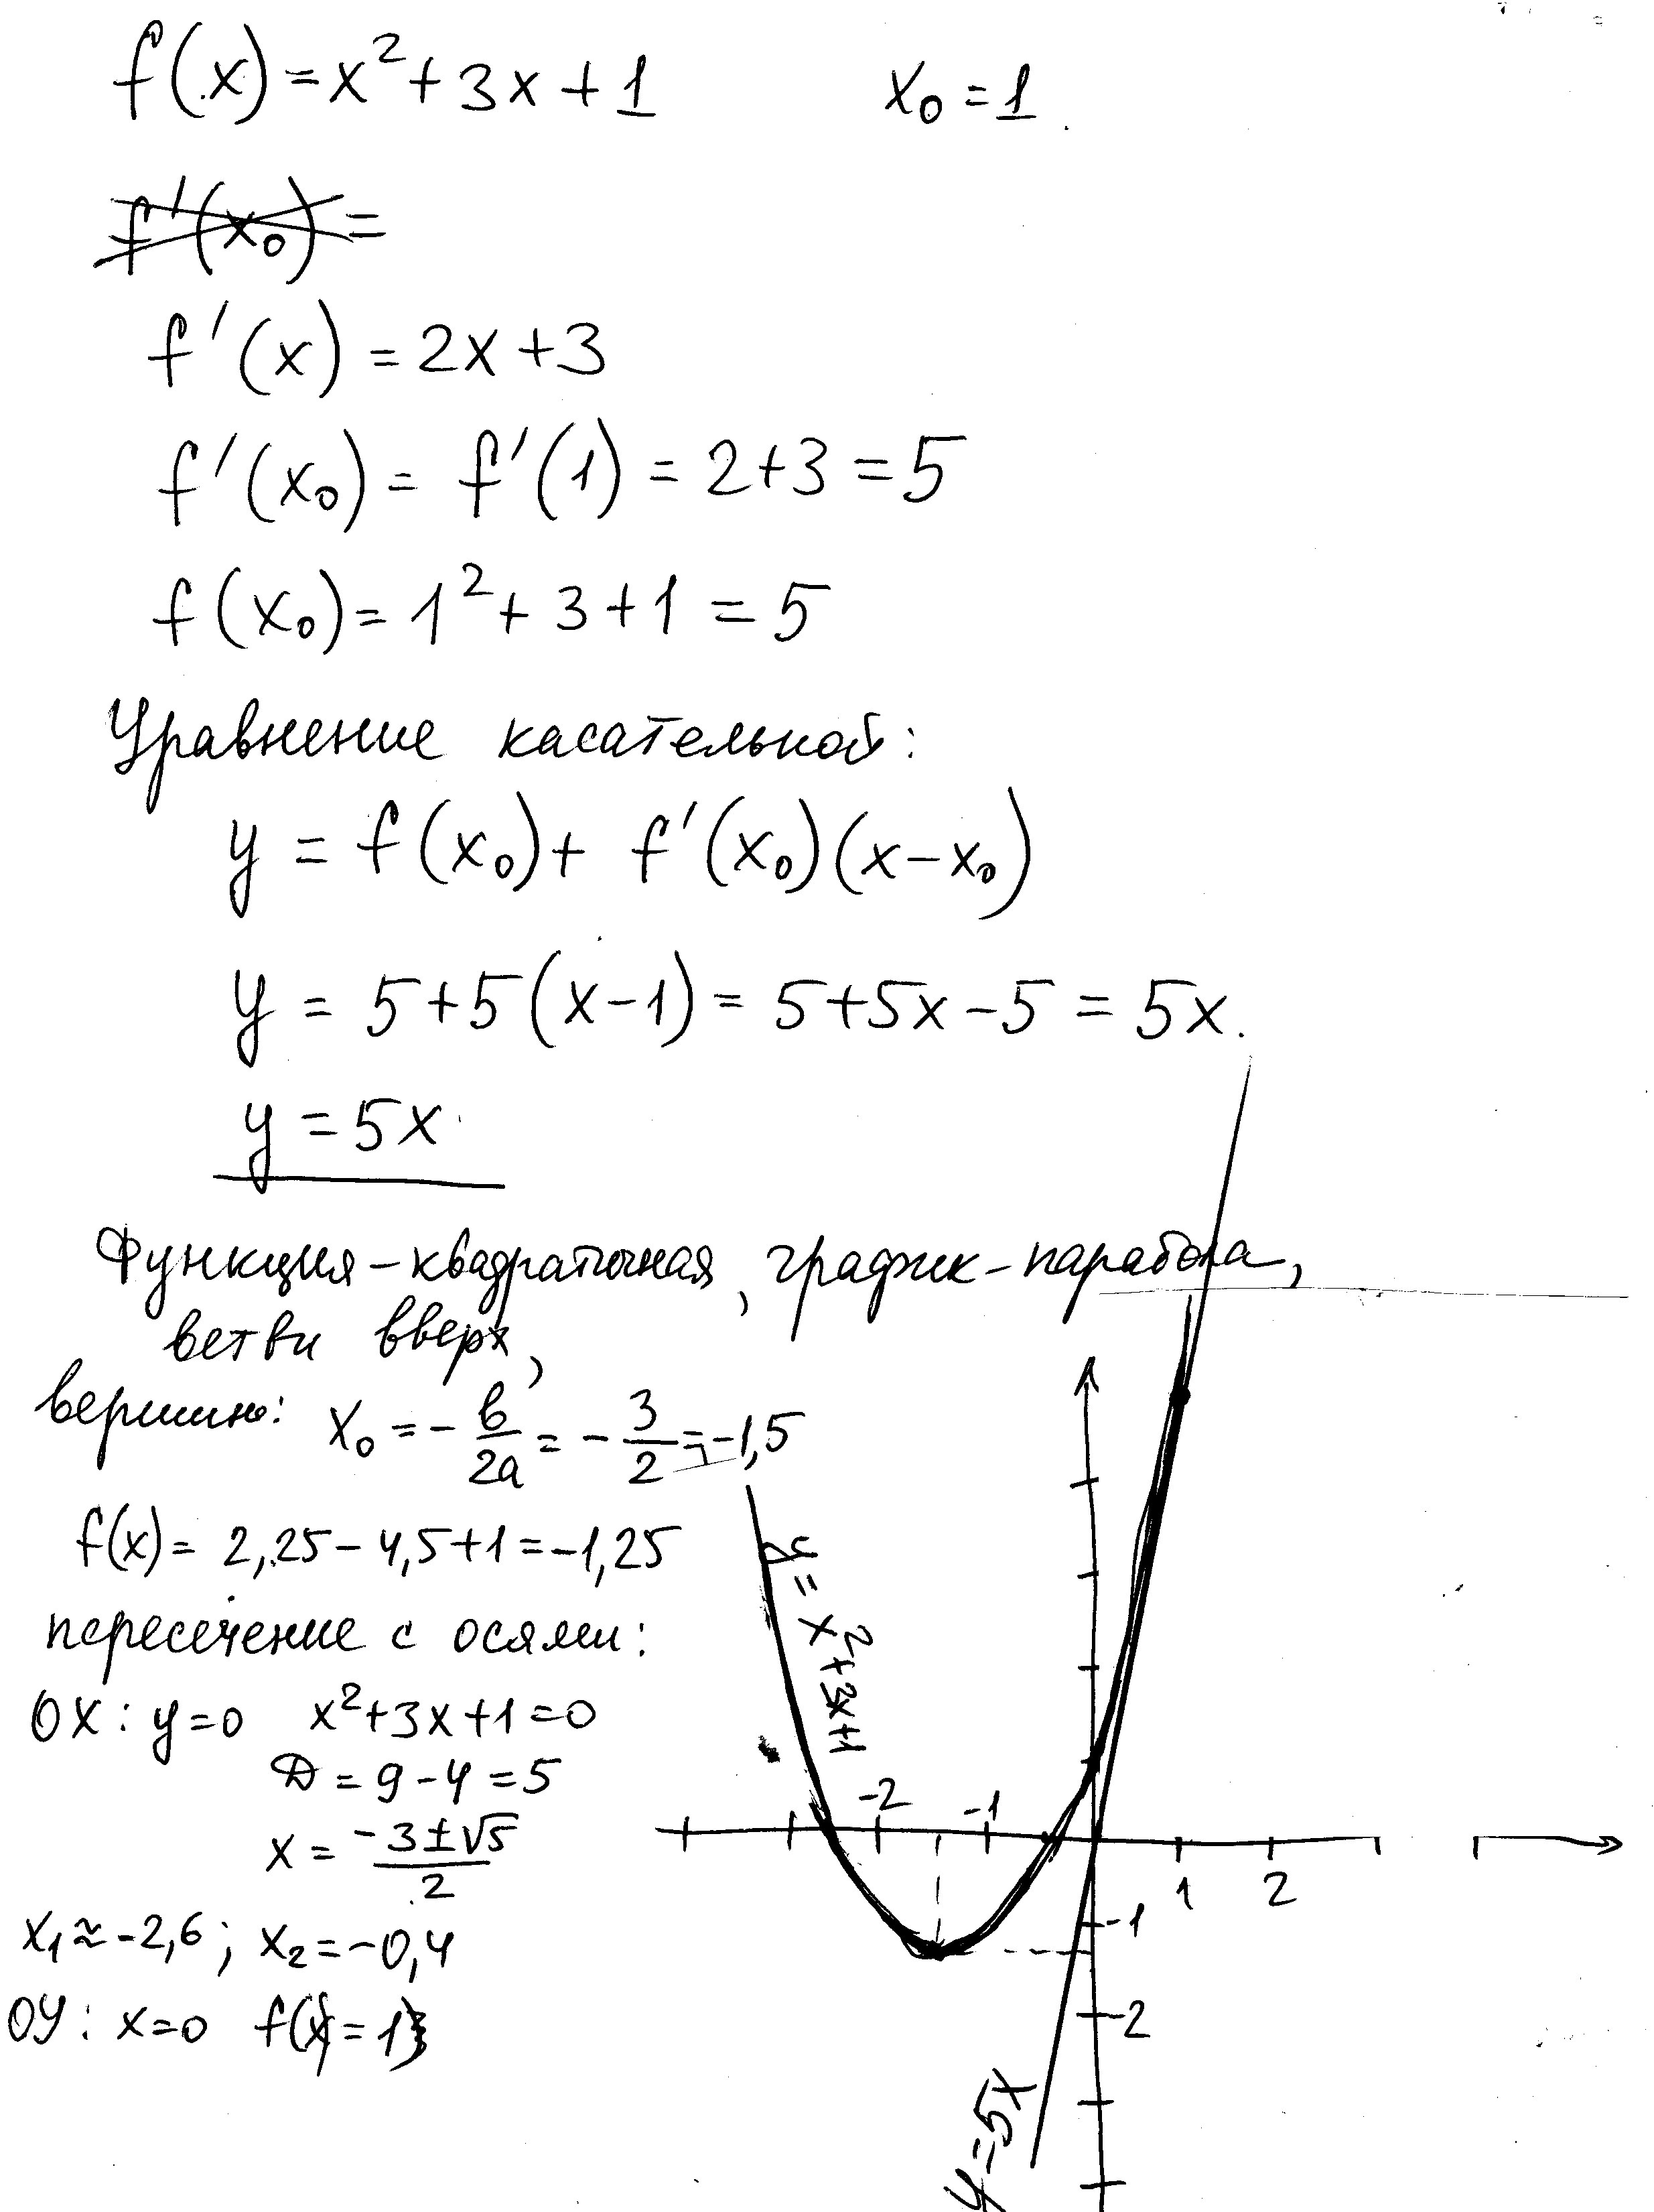 f(x) = x² + 3x + 1 x₀ = 1
f'(x₀) =
f'(x) = 2x + 3
f'(x₀) = f'(1) = 2 + 3 = 5
f(x₀) = 1² + 3 + 1 = 5
Уравнение касательной:
y = f(x₀) + f'(x₀)(x - x₀)
y = 5 + 5(x - 1) = 5 + 5x - 5 = 5x.
y = 5x
Функция - квадратичная, график - парабола,
ветви вверх,
вершина: x₀ = - в/2a = - 3/2 = -1,5
f(x) = 2,25 - 4,5 + 1 = -1,25
пересечение с осями:
OX: y = 0 x² + 3x + 1 = 0
D = 9 - 4 = 5
x = (-3 ± √5)/2
x₁ ≈ -2,6; x₂ = -0,4
OY: x = 0 f(x) = 1
y = x² + 3x + 1
-2 -1 1 2
-1
-2
y = 5x